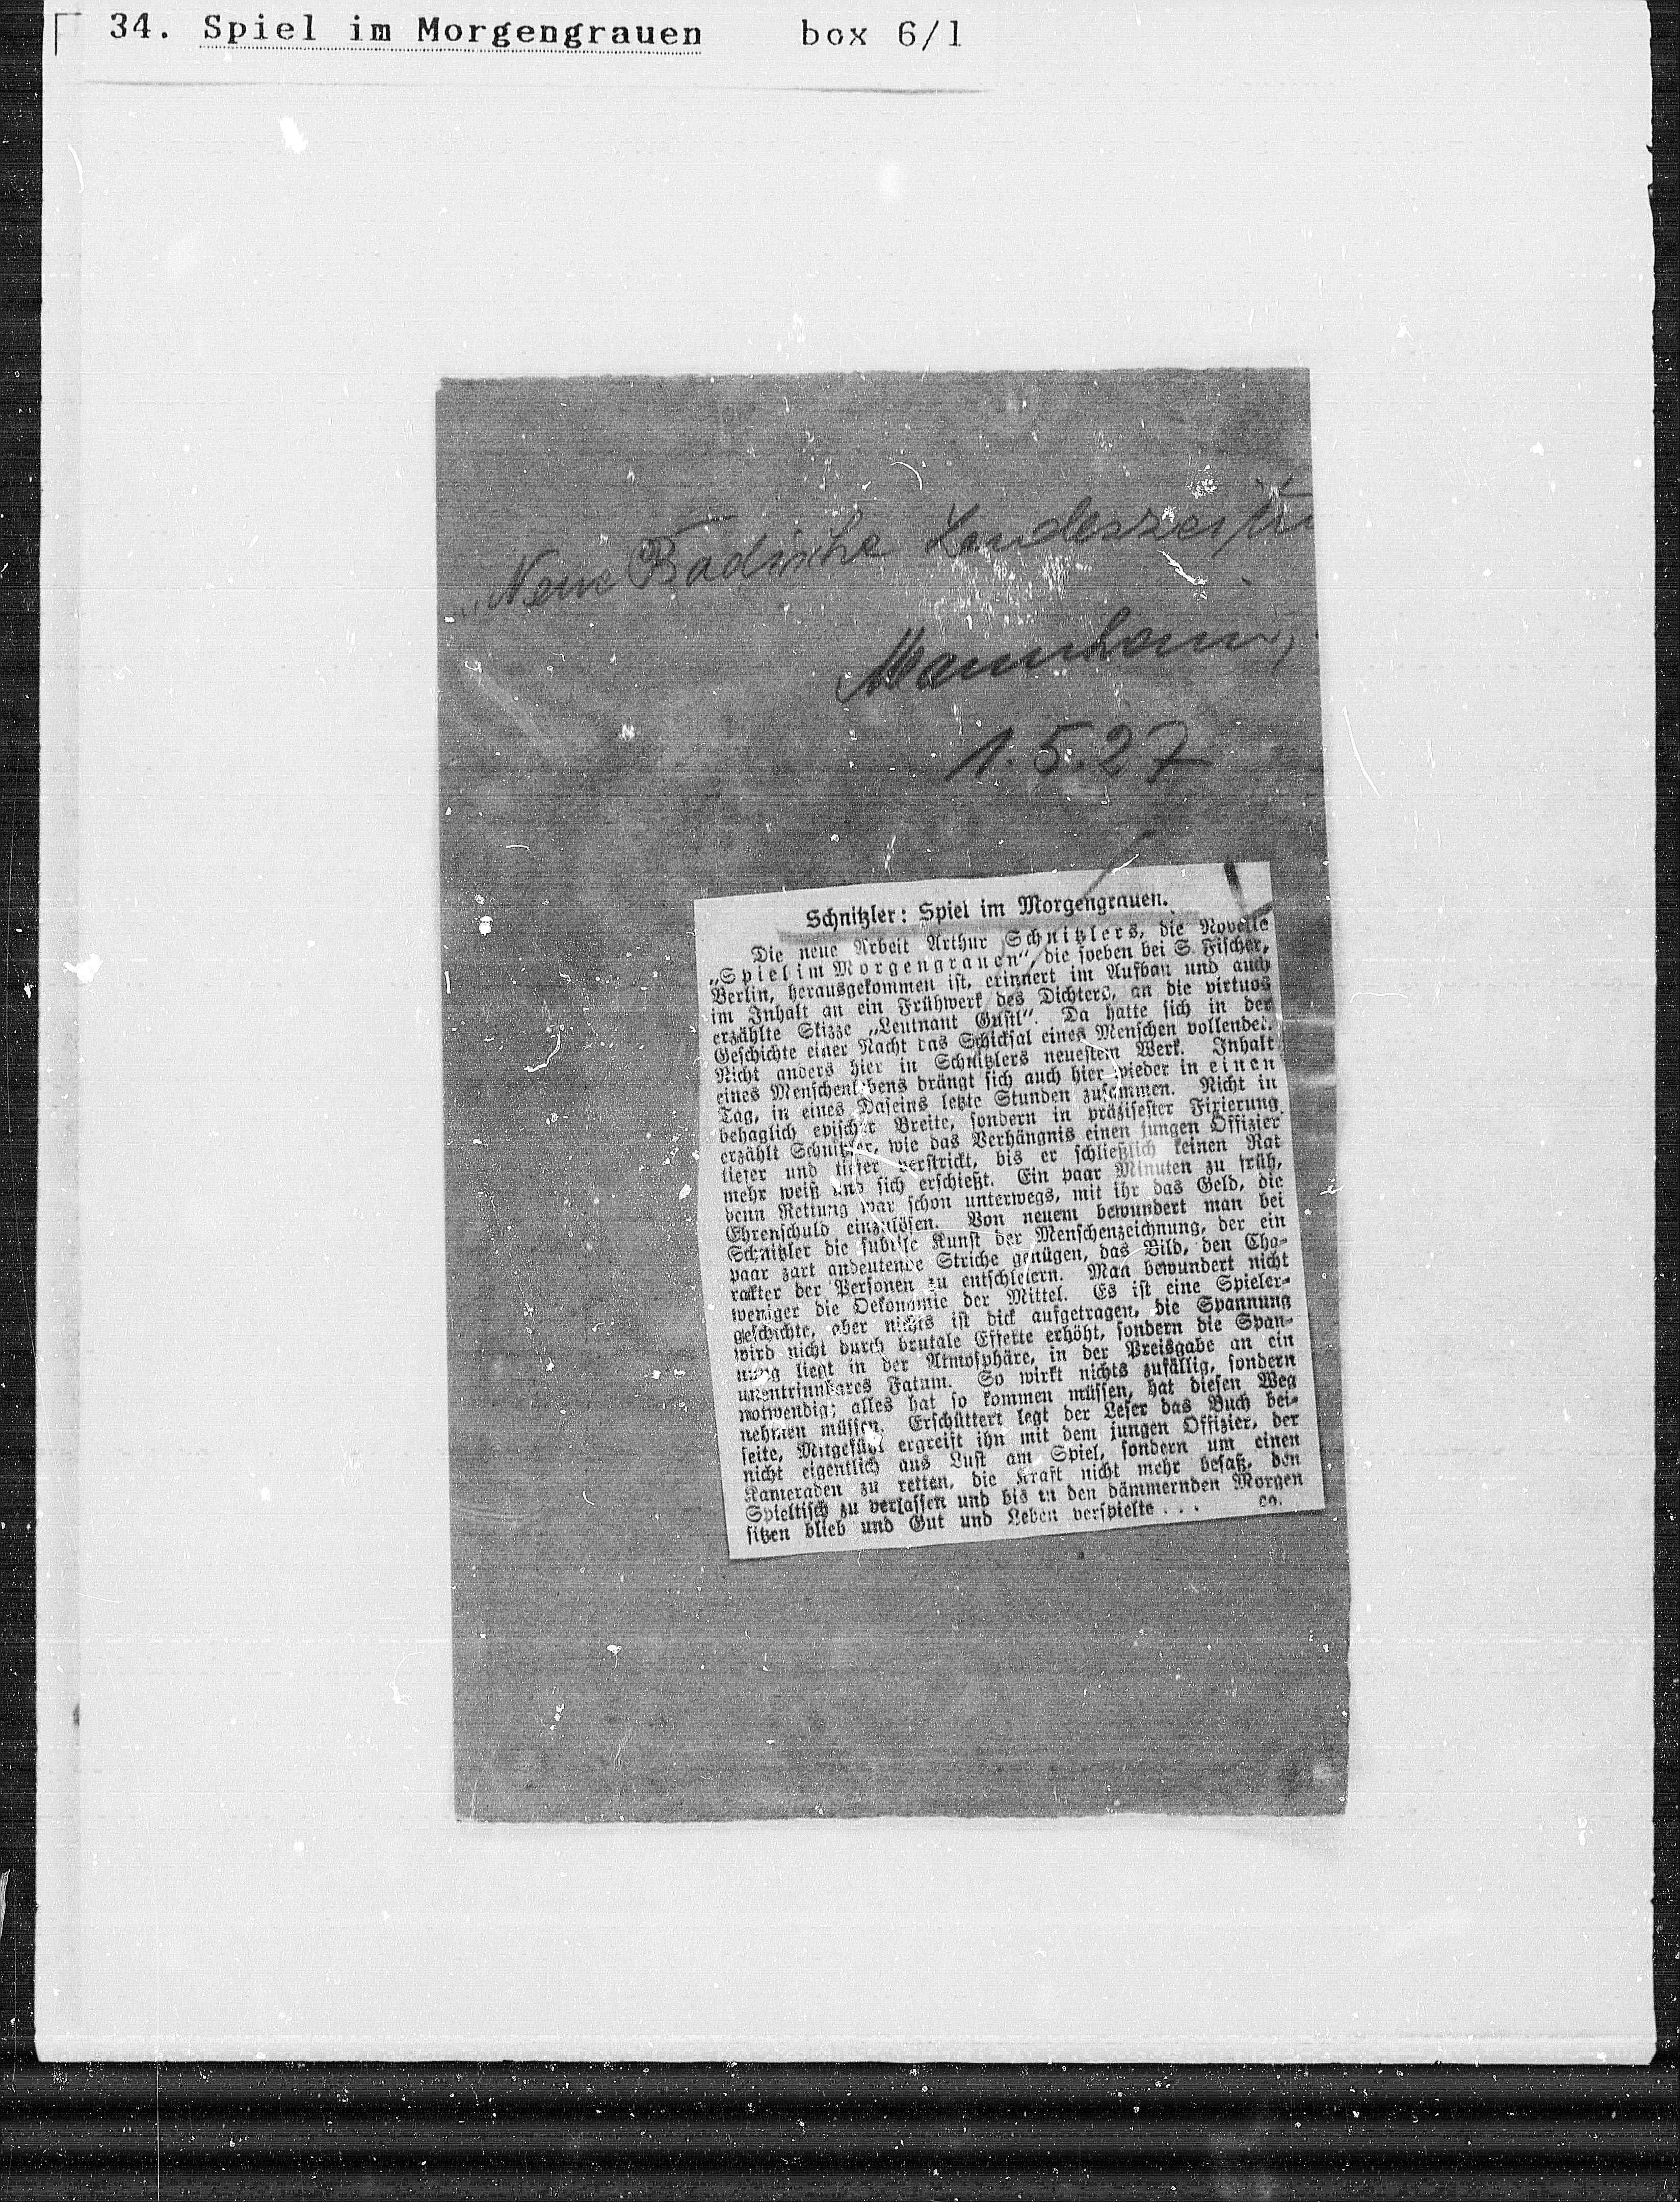 34. Spiel im Morgengrauen box 6/1
„Neue Badische Landeszeitu
Mannheim,
1.5.27
Schnitzler: Spiel im Morgengrauen.
Die neue Arbeit Arthur Schnitzlers, die Novelle
„Spiel im Morgengrauen“, die soeben bei S. Fischer,
Berlin, herausgekommen ist, erinnert im Aufbau und auch
im Inhalt an ein Frühwerk des Dichters, an die virtuos
erzählte Skizze „Leutnant Gustl“. Da hatte sich in der
Geschichte einer Nacht das Schicksal eines Menschen vollendet.
Nicht anders hier in Schnitzlers neuestem Werk. Inhalt
eines Menschenlebens drängt sich auch hier wieder in einen
Tag, in eines Daseins letzte Stunden zusammen. Nicht in
behaglich epischer Breite, sondern in präzisester Fixierung
erzählt Schnitzler, wie das Verhängnis einen jungen Offizier
tiefer und tiefer verstrickt, bis er schließlich keinen Rat
mehr weiß und sich erschießt. Ein paar Minuten zu früh,
denn Rettung war schon unterwegs, mit ihr das Geld, die
Ehrenschuld einzulösen. Von neuem bewundert man bei
Schnitzler die subtile Kunst der Menschenzeichnung, der ein
paar zart andeutende Striche genügen, das Bild, den Cha-
rakter der Personen zu entschleiern. Man bewundert nicht
weniger die Oekonomie der Mittel. Es ist eine Spieler-
geschichte, aber nichts ist dick aufgetragen, die Spannung
wird nicht durch brutale Effekte erhöht, sondern die Span-
nung liegt in der Atmosphäre, in der Preisgabe an ein
unentrinnbares Fatum. So wirkt nichts zufällig, sondern
notwendig; alles hat so kommen müssen, hat diesen Weg
nehmen müssen. Erschüttert legt der Leser das Buch bei-
seite, Mitgefühl ergreift ihn mit dem jungen Offizier, der
nicht eigentlich aus Lust am Spiel, sondern um einen
Kameraden zu retten, die Kraft nicht mehr besaß, den
Spieltisch zu verlassen und bis in den dämmernden Morgen
sitzen blieb und Gut und Leben verspielte . . . co.